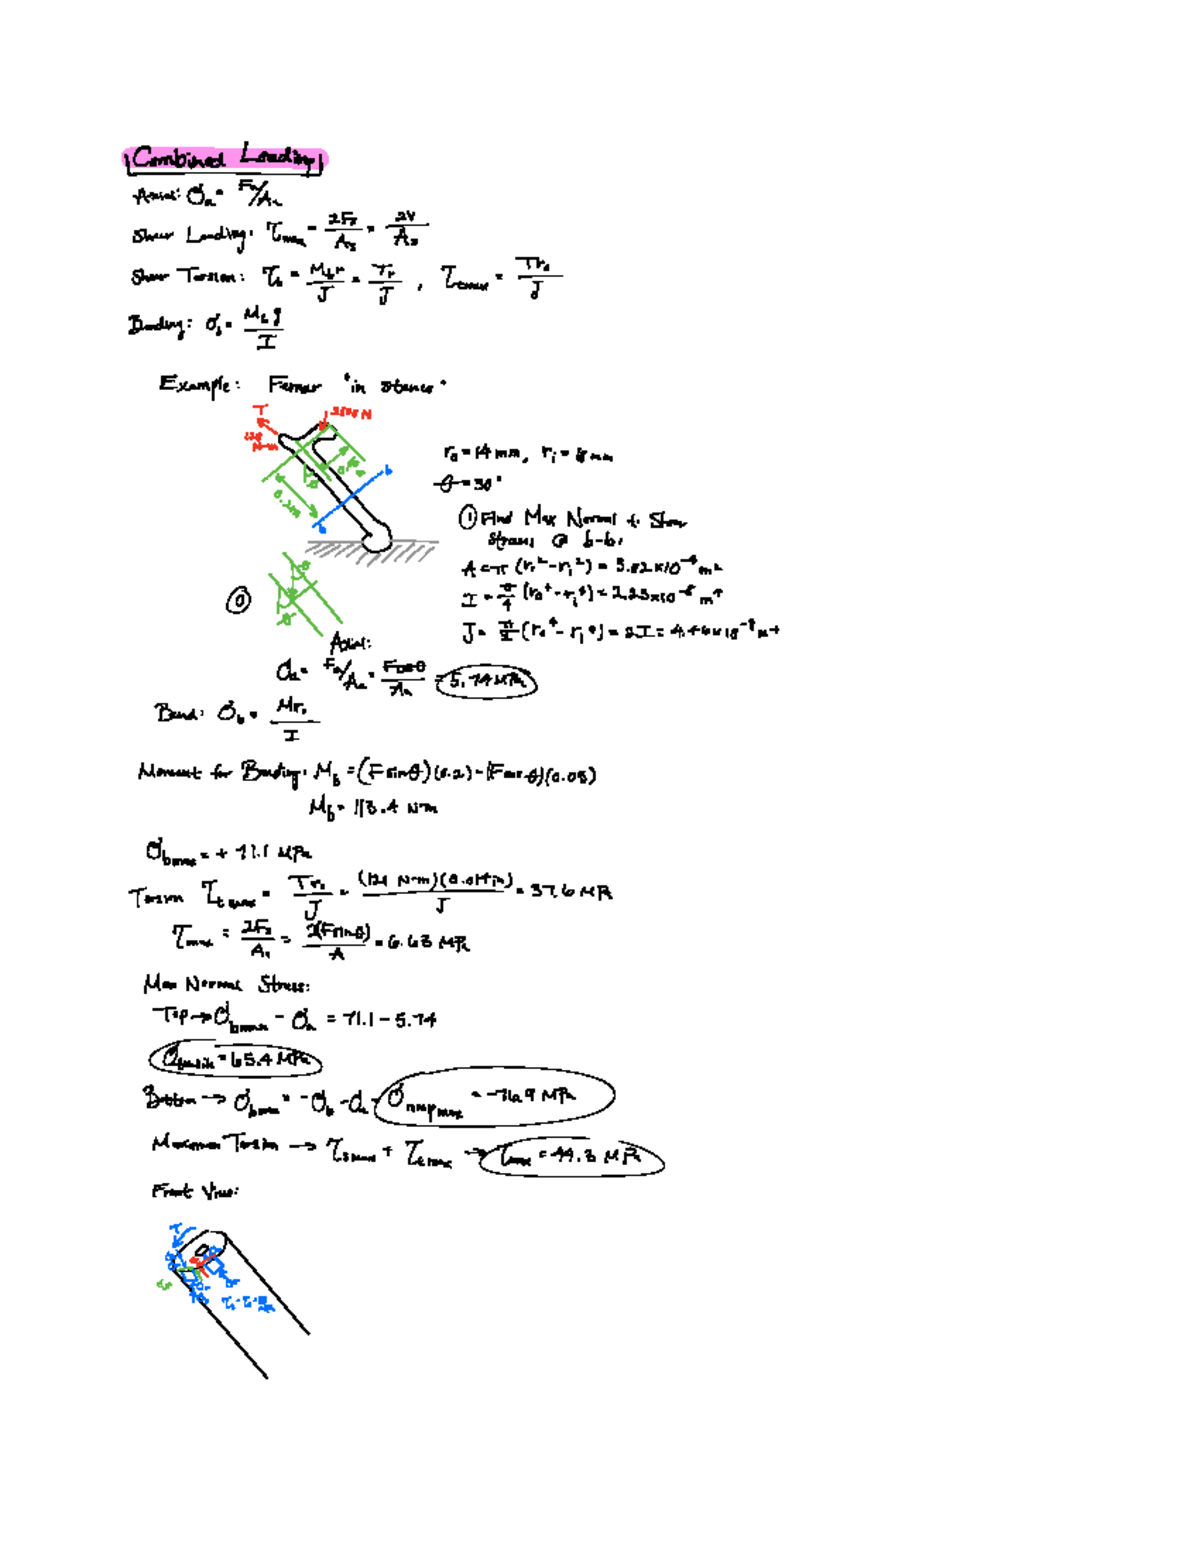 Combined Loading
Axial: σa = Fa/Aa
Shear Loading: τmax = 2Fs/As = 2V/As
Shear Torsion: τt = Mt r/J = Tr/J , τtmax = Tro/J
Bending: σb = Mb y/I
Example: Femur "in stance"
T
N-m
r₀ = 14 mm, ri = 8 mm
θ = 30°
0.2m
b
b
① Find Max Normal & Shear
Stress @ b-b.
A = π (ro² - ri²) = 3.82 x10⁻⁴ m²
I = π/4 (ro⁴ - ri⁴) = 2.23x10⁻⁸ m⁴
J = π/2 (ro⁴ - ri⁴) = 2I = 4.46x10⁻⁸ m⁴
θ
θ
Axial:
σa = Fa/Aa = Fcosθ/Aa = 5.74 MPa
Bend: σb = Mro/I
Moment for Bending: Mb = (Fsinθ)(0.2) - (Fcosθ)(0.05)
Mb = 113.4 N-m
σbmax = + 71.1 MPa
Torsion τtmax = Tro/J = (120 N-m)(0.014m)/J = 37.6 MPa
τmax = 2Fs/As = 2(Fsinθ)/A = 6.63 MPa
Max Normal Stress:
Top → σbmax - σa = 71.1 - 5.74
σtensile = 65.4 MPa
Bottom → σbmax = -σb - σa = σcompmax = -76.9 MPa
Maximum Torsion → τsmax + τtmax → τmax = 44.3 MPa
Front View:
T